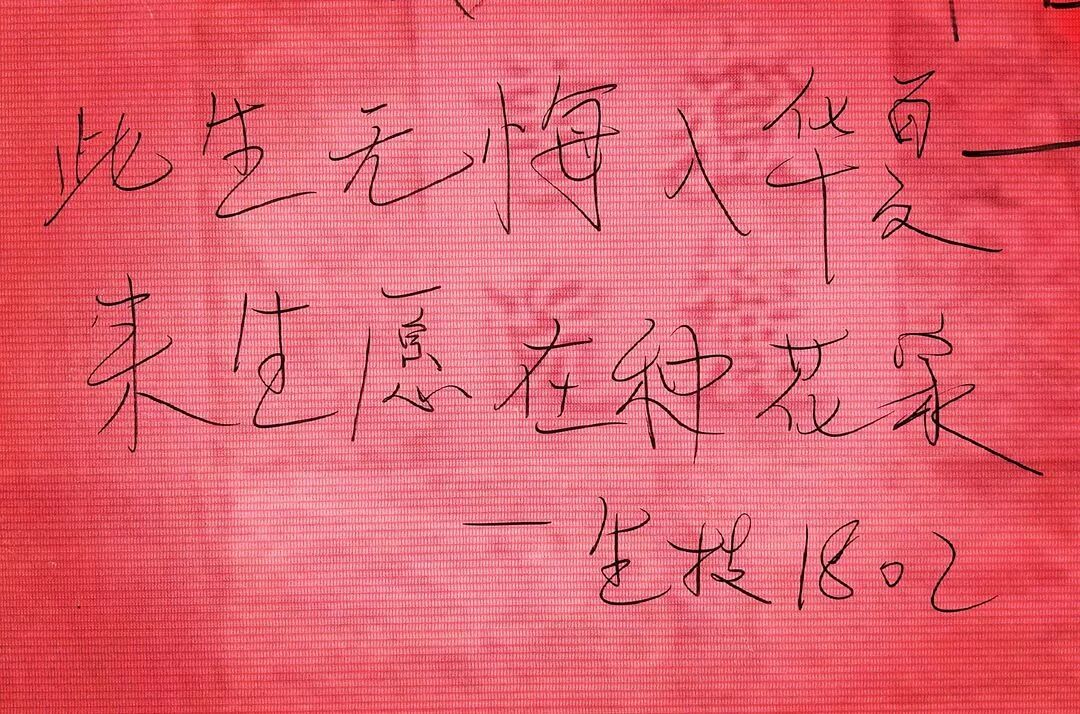 此生无悔入华夏
来生愿在种花家
—生技1802